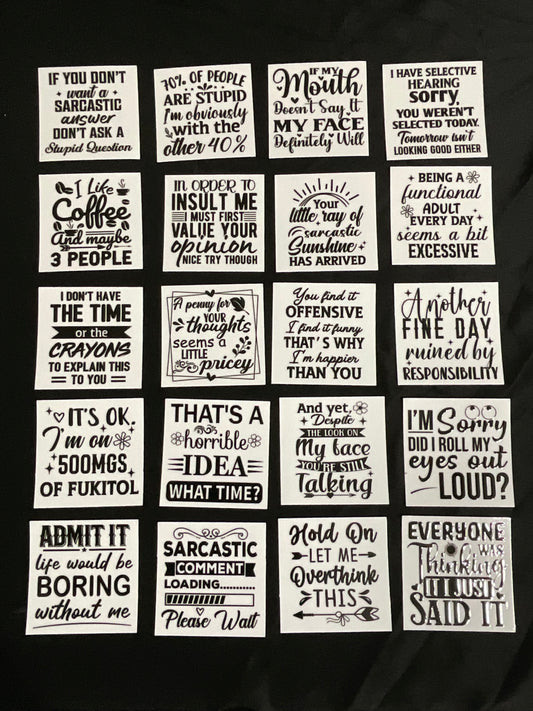 IF YOU DON'T
want a
SARCASTIC
answer
DON'T ASK A
Stupid Question
70% OF PEOPLE
ARE STUPID
I'm obviously
with the
other 40%
IF MY
Mouth
Doesn't Say It
MY FACE
Definitely Will
I HAVE SELECTIVE
HEARING
sorry,
YOU WEREN'T
SELECTED TODAY.
Tomorrow isn't
LOOKING GOOD EITHER
I Like
Coffee
And maybe
3 PEOPLE
IN ORDER TO
INSULT ME
I MUST FIRST
VALUE YOUR
opinion
NICE TRY THOUGH
Your
little ray of
sarcastic
Sunshine
HAS ARRIVED
BEING A
functional
ADULT
EVERY DAY
seems a bit
EXCESSIVE
I DON'T HAVE
THE TIME
or the
CRAYONS
TO EXPLAIN THIS
TO YOU
A penny for
YOUR
thoughts
seems a
LITTLE
pricey
You find it
OFFENSIVE
I find it funny
THAT'S WHY
I'm happier
THAN YOU
Another
FINE DAY
ruined by
RESPONSIBILITY
IT'S OK,
I'm on
500MGS
OF FUKITOL
THAT'S A
horrible
IDEA
WHAT TIME?
And yet,
Despite
THE LOOK ON
My face
YOU'RE STILL
Talking
I'M Sorry
DID I ROLL MY
eyes out
LOUD?
ADMIT IT
life would be
BORING
without me
SARCASTIC
COMMENT
LOADING...........
Please Wait
Hold On
LET ME
Overthink
THIS
EVERYONE
WAS
Thinking
IT I JUST
SAID IT